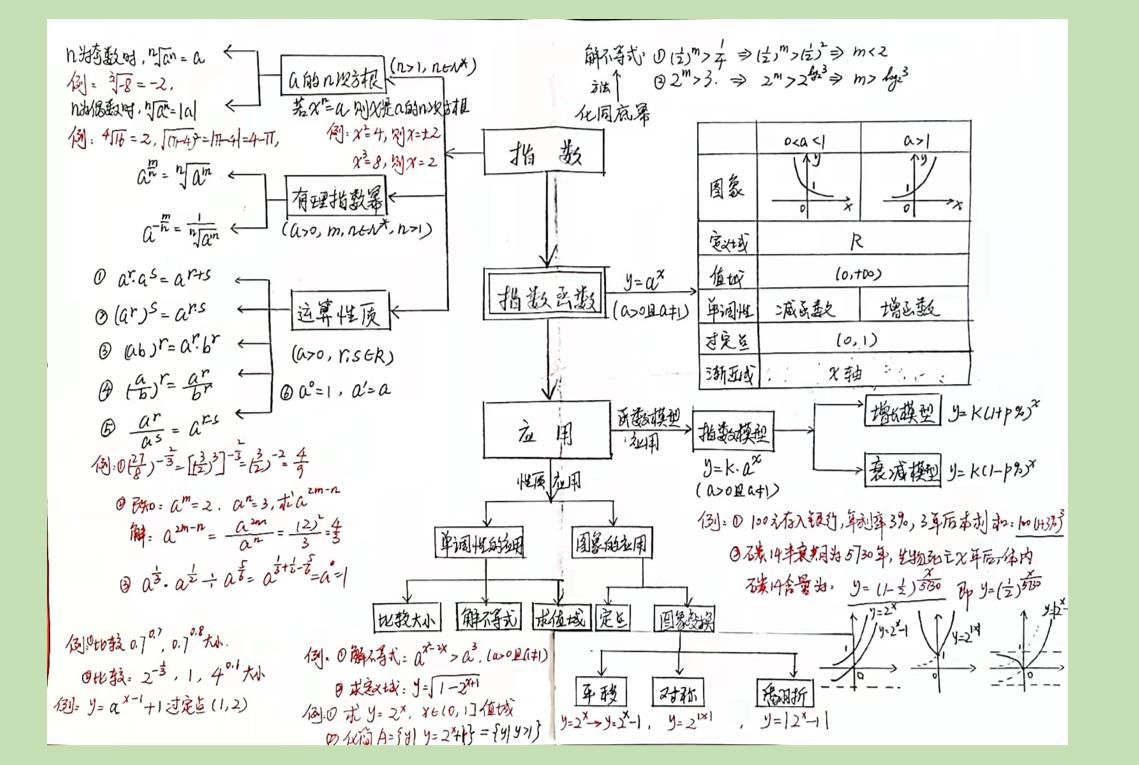 n为奇数时，ⁿ√aⁿ = a
例：³√-8 = -2，
n为偶数时，ⁿ√aⁿ = |a|
例：⁴√16 = 2，√(π-4)² = |π-4| = 4-π，
a的n次方根
(n>1, n∈N*)
若xⁿ=a，则x是a的n次方根
例：x²=4，则x=±2
x³=8，则x=2
a^(m/n) = ⁿ√aᵐ
a^(-m/n) = 1/ⁿ√aᵐ
有理指数幂
(a>0, m,n∈N*, n>1)
① aʳ·aˢ = aʳ⁺ˢ
② (aʳ)ˢ = aʳˢ
③ (ab)ʳ = aʳ·bʳ
④ (a/b)ʳ = aʳ/bʳ
⑤ aʳ/aˢ = aʳ⁻ˢ
运算性质
(a>0, r,s∈R)
⑥ a⁰=1，a¹=a
例：① (27/8)^(-2/3) = [(3/2)³]^(-2/3) = (3/2)⁻² = 4/9
② 已知：aᵐ=2，aⁿ=3，求a^(2m-n)
解：a^(2m-n) = a^(2m)/aⁿ = (2)²/3 = 4/3
③ a^(1/3)·a^(1/2)÷a^(5/6) = a^(1/3+1/2-5/6) = a⁰ = 1
解不等式：① (1/2)ᵐ > 1/4 ⇒ (1/2)ᵐ > (1/2)² ⇒ m<2
② 2ᵐ>3. ⇒ 2ᵐ > 2^(log₂3) ⇒ m > log₂3
方法
化同底幂
指数
指数函数
y=aˣ
(a>0且a≠1)
0<a<1
a>1
图象
y
1
0
x
y
1
0
x
定义域
R
值域
(0,+∞)
单调性
减函数
增函数
过定点
(0,1)
渐近线
x轴
应用
函数模型
应用
指数模型
y=k·aˣ
(a>0且a≠1)
增长模型
y=k(1+p%)ˣ
衰减模型
y=k(1-p%)ˣ
例：① 100元存入银行，年利率3%，3年后本利和：100(1+3%)³
② 碳14半衰期为5730年，生物死亡x年后体内
碳14含量为：y=(1-1/2)^(x/5730) 即 y=(1/2)^(x/5730)
性质应用
单调性的应用
图象的应用
比较大小
解不等式
求值域
定点
图象变换
平移
对称
翻折
y=2ˣ→y=2ˣ-1，
y=2^|x|
，
y=|2ˣ-1|
y=2ˣ
y=2ˣ-1
0
y=2^|x|
0
0
例：①比较 0.7^0.7，0.7^0.8大小.
②比较：2^(-1/3)，1，4^0.1大小
例：y=a^(x-1)+1过定点(1,2)
例：① 解不等式：a^(x²-2x)>a³，(a>0且a≠1)
② 求定义域：y=√(1-2^(x+1))
例：① 求y=2ˣ，x∈(0,1]值域
② 化简A={y|y=2ˣ+1}={y|y>1}